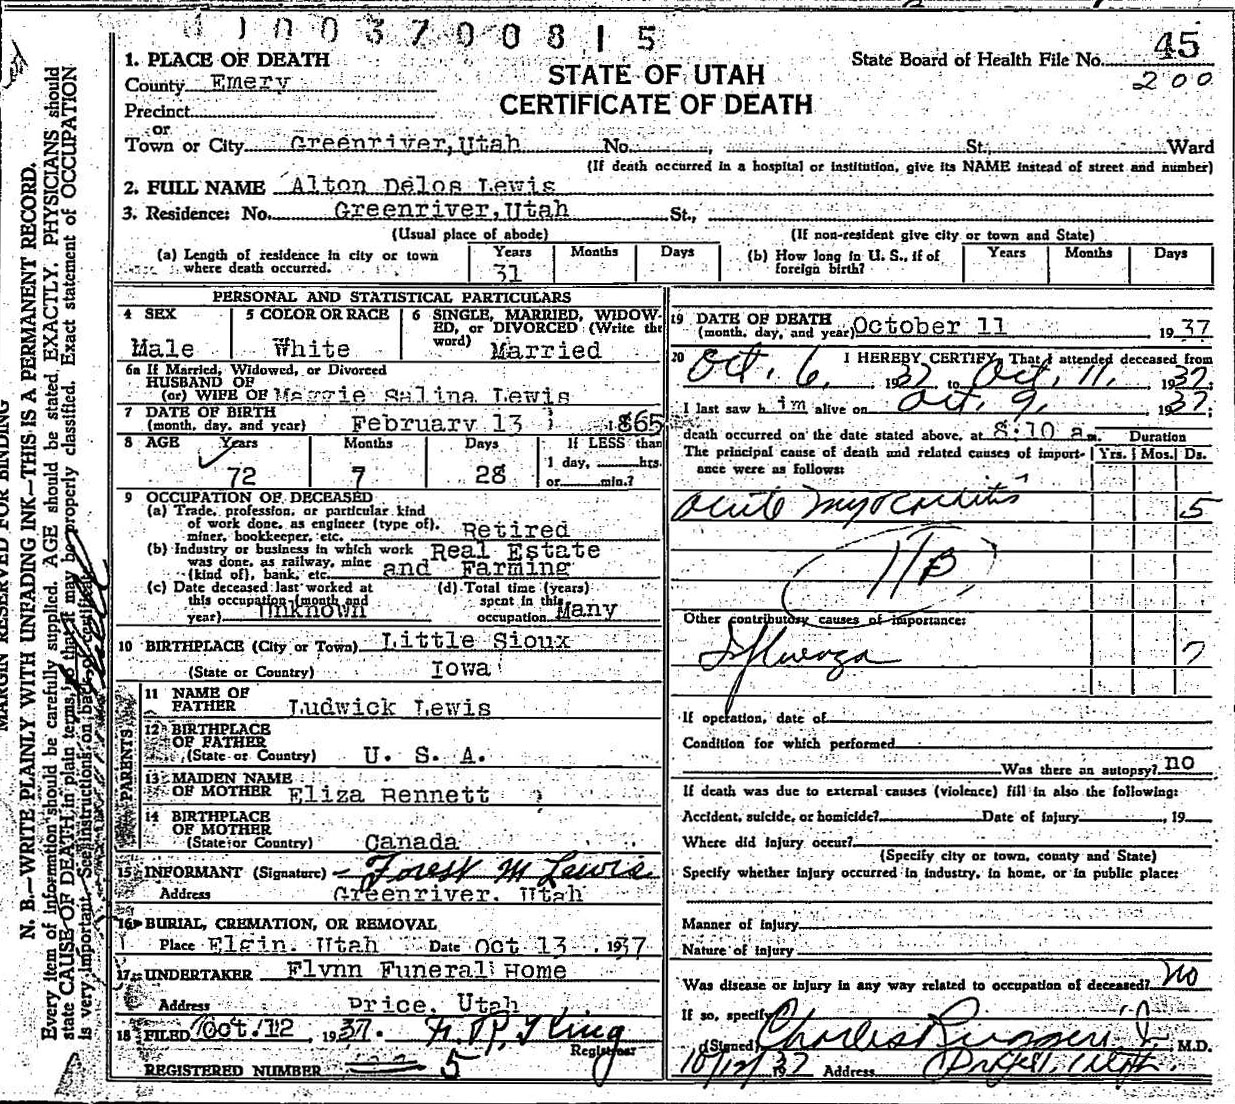 11003700815
State Board of Health File No. 45
200
STATE OF UTAH
CERTIFICATE OF DEATH
1. PLACE OF DEATH
County Emery
Precinct
or
Town or City Greenriver, Utah No. St., Ward
(If death occurred in a hospital or institution, give its NAME instead of street and number)
2. FULL NAME Alton Delos Lewis
3. Residence: No. Greenriver, Utah St.,
(Usual place of abode) (If non-resident give city or town and State)
(a) Length of residence in city or town where death occurred. Years 31 Months Days
(b) How long in U. S., if of foreign birth? Years Months Days
PERSONAL AND STATISTICAL PARTICULARS
4 SEX Male
5 COLOR OR RACE White
6 SINGLE, MARRIED, WIDOWED, or DIVORCED (Write the word) Married
6a If Married, Widowed, or Divorced
HUSBAND OF
(or) WIFE OF Maggie Salina Lewis
7 DATE OF BIRTH
(month, day, and year) February 13 1865
8 AGE Years 72 Months 7 Days 28 If LESS than 1 day, hrs. or min.?
9 OCCUPATION OF DECEASED
(a) Trade, profession, or particular kind of work done, as engineer (type of), miner, bookkeeper, etc. Retired
(b) Industry or business in which work was done, as railway, mine (kind of), bank, etc. Real Estate and Farming
(c) Date deceased last worked at this occupation (month and year) Unknown
(d) Total time (years) spent in this occupation Many
10 BIRTHPLACE (City or Town) Little Sioux
(State or Country) Iowa
PARENTS
11 NAME OF FATHER Ludwick Lewis
12 BIRTHPLACE OF FATHER
(State or Country) U. S. A.
13 MAIDEN NAME OF MOTHER Eliza Bennett
14 BIRTHPLACE OF MOTHER
(State or Country) Canada
15 INFORMANT (Signature) Forest M Lewis
Address Greenriver, Utah
16 BURIAL, CREMATION, OR REMOVAL
Place Elgin, Utah Date Oct 13, 1937
17 UNDERTAKER Flynn Funeral Home
Address Price, Utah
18 FILED Oct. 12, 1937.
Registrar
REGISTERED NUMBER 5
19 DATE OF DEATH
(month, day, and year) October 11 1937
20 I HEREBY CERTIFY, That I attended deceased from
Oct. 6, 1937 to Oct. 11, 1937;
I last saw h im alive on Oct. 9, 1937;
death occurred on the date stated above, at 8:10 a.m. Duration
The principal cause of death and related causes of importance were as follows: Yrs. Mos. Ds.
acute myocarditis 5
Other contributory causes of importance:
Influenza 7
If operation, date of
Condition for which performed
Was there an autopsy? no
If death was due to external causes (violence) fill in also the following:
Accident, suicide, or homicide? Date of injury , 19
Where did injury occur?
(Specify city or town, county and State)
Specify whether injury occurred in industry, in home, or in public place:
Manner of injury
Nature of injury
Was disease or injury in any way related to occupation of deceased? No
If so, specify
(Signed) Charles Ruggeri Jr. M.D.
10/12/37 Address Utah.
MARGIN RESERVED FOR BINDING
N. B.—WRITE PLAINLY WITH UNFADING INK—THIS IS A PERMANENT RECORD.
Every item of information should be carefully supplied. AGE should be stated EXACTLY. PHYSICIANS should
state CAUSE OF DEATH in plain terms, so that it may be properly classified. Exact statement of OCCUPATION
is very important. See instructions on back of certificate.